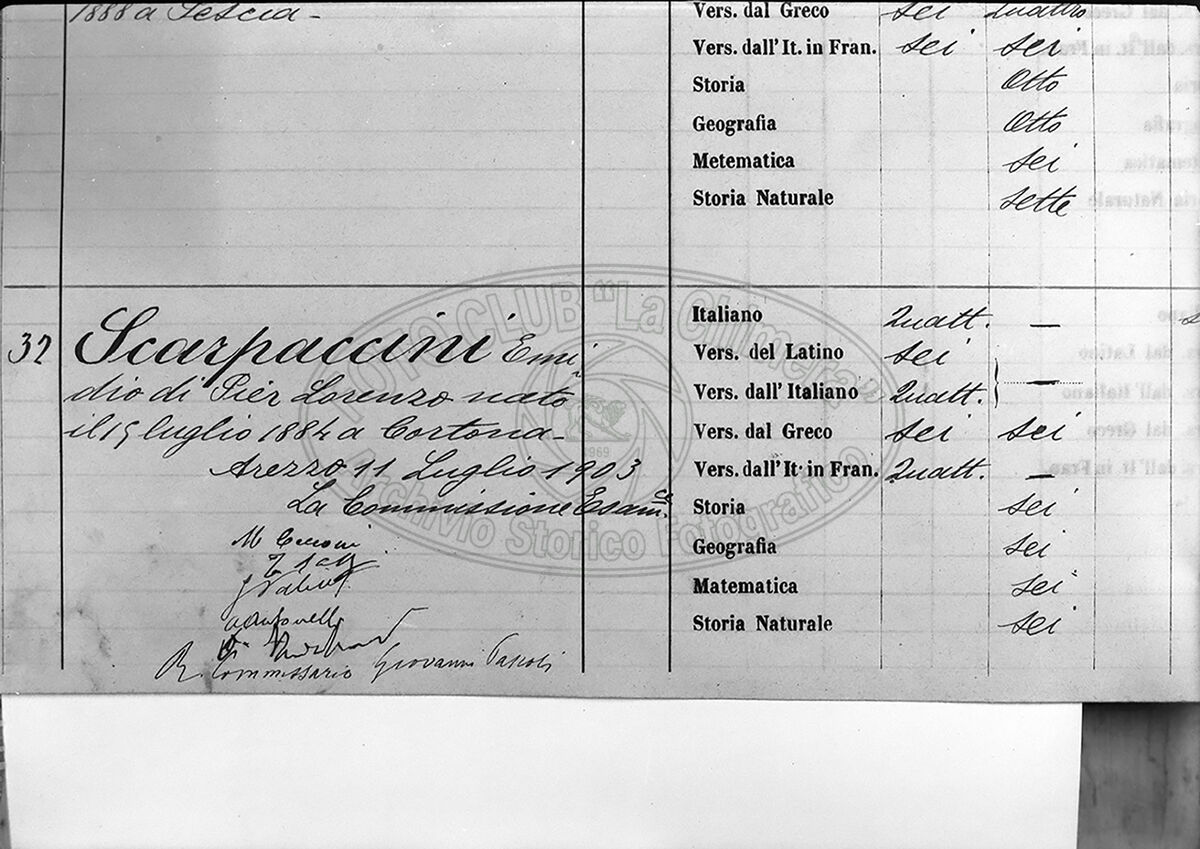 1888 a Pescia -
Vers. dal Greco sei quattro
Vers. dall' It. in Fran. sei sei
Storia Otto
Geografia Otto
Metematica sei
Storia Naturale sette
32 Scarpaccini Emi-
dio di Pier Lorenzo nato
il 15 luglio 1884 a Cortona -
Arezzo 11 Luglio 1903
La Commissione Esam.ce
R. Commissario Giovanni Pascoli
Italiano Quatt. —
Vers. del Latino sei
Vers. dall' Italiano Quatt. —
Vers. dal Greco sei sei
Vers. dall' It. in Fran. Quatt. —
Storia sei
Geografia sei
Matematica sei
Storia Naturale sei
FOTO CLUB "La Chimera"
1969
Archivio Storico Fotografico